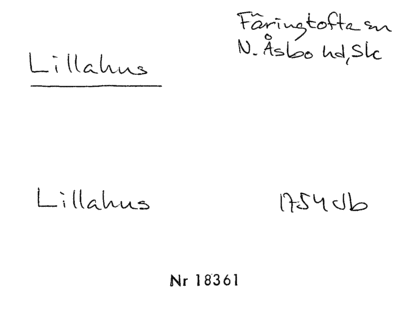 Lillahus
Färingtofta sn
N. Åsbo hd, Sk
Lillahus
1754 db
Nr 18361